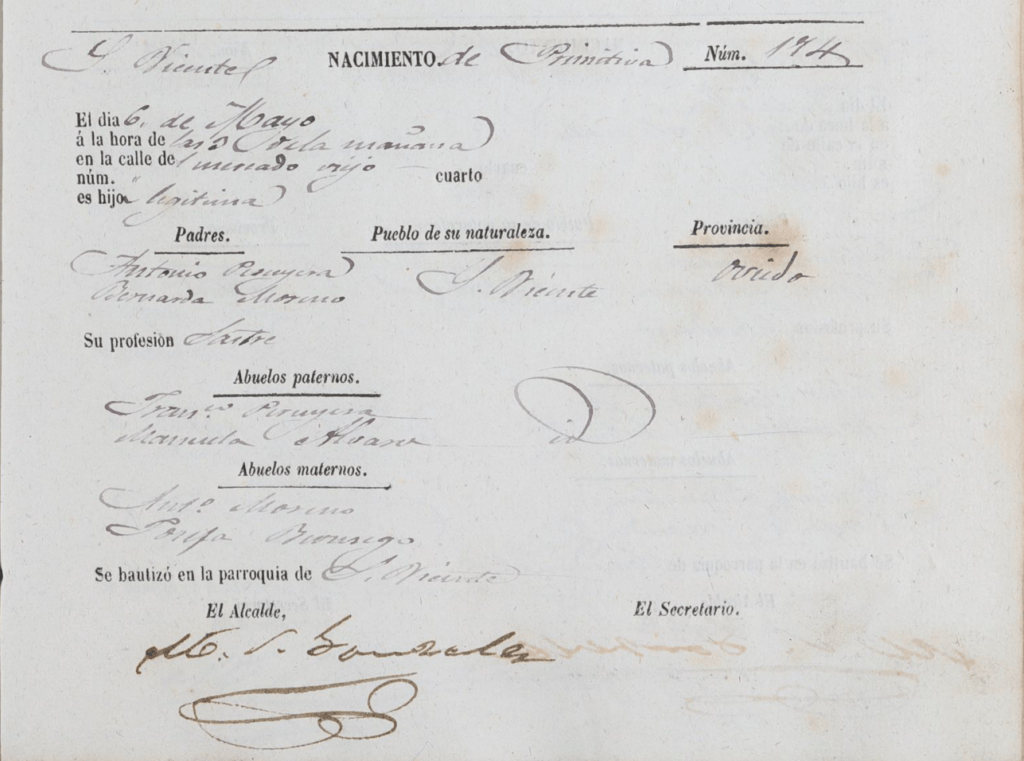 S. Vicente NACIMIENTO. de Primitiva Núm. 174
El dia 6. de Mayo
á la hora de las 3 de la mañana
en la calle del mercado viejo
núm. " cuarto
es hijo legitima
Padres. Pueblo de su naturaleza. Provincia.
Antonio S. Vicente Oviedo
Bernarda Moreno
Su profesión Sastre
Abuelos paternos.
Fran.co
Manuela Alvarez id
Abuelos maternos.
Ant.o Moreno
Josefa
Se bautizó en la parroquia de S. Vicente
El Alcalde, El Secretario.
M. S. Gonzalez